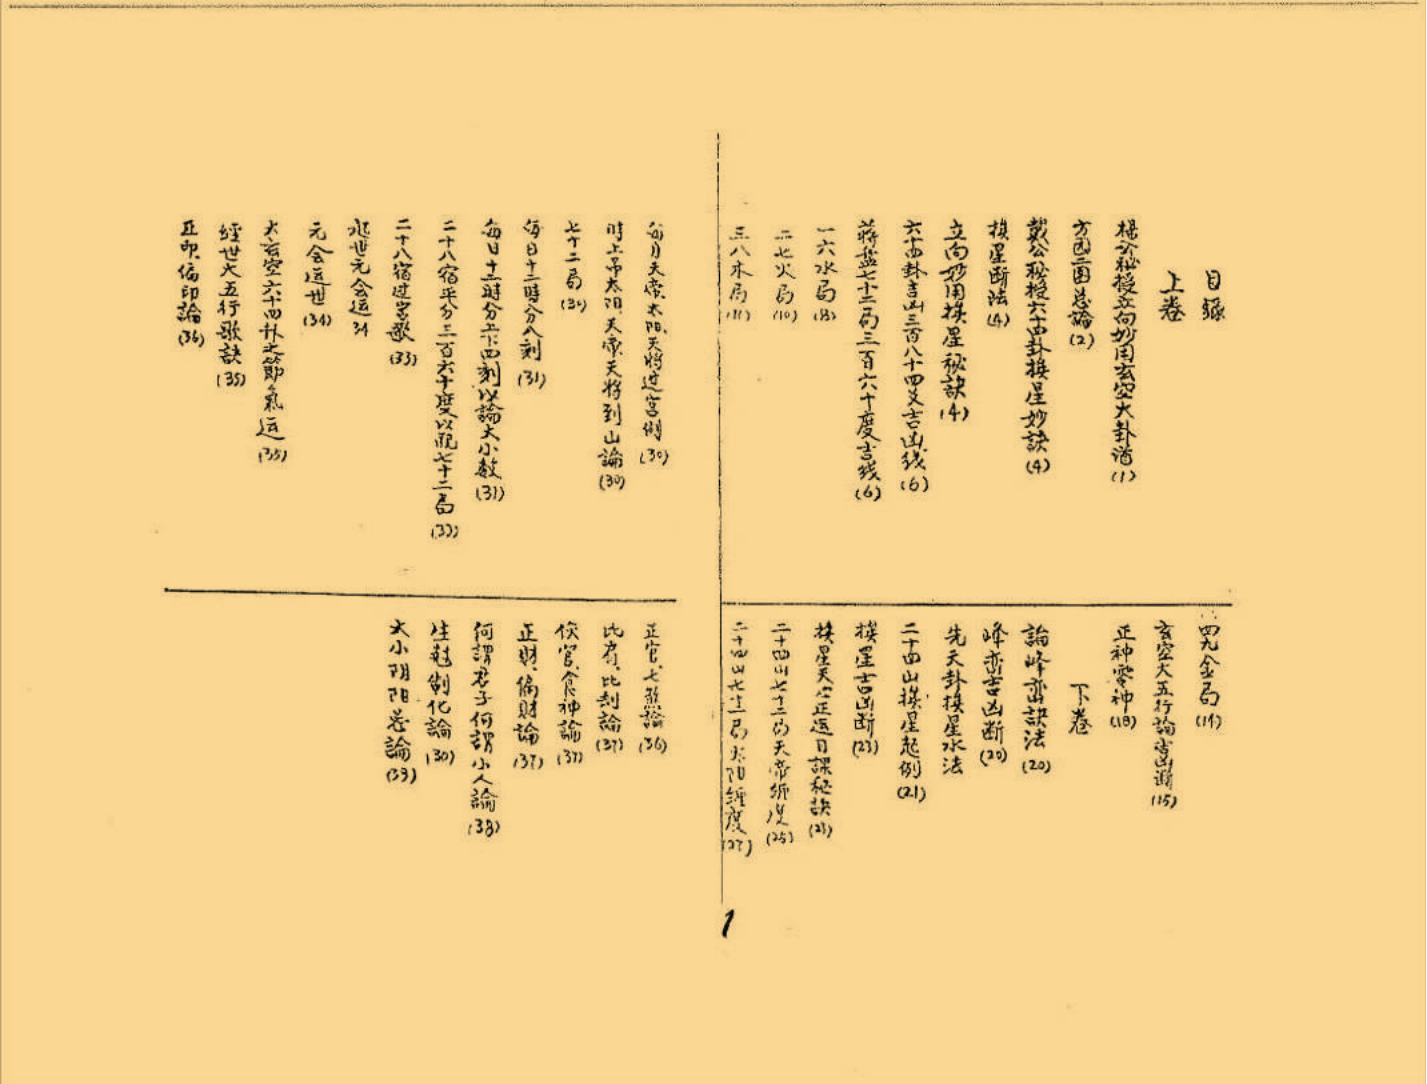 目錄
上卷
楊公秘授立向妙用玄空大卦道(1)
方圆二圖总論(2)
戴公秘授六十四卦挨星妙訣(4)
挨星断法(4)
立向妙用挨星秘訣(4)
六十四卦吉山三百八十四爻吉凶线(6)
蒋盘七十二局三百六十度吉线(6)
一六水局(8)
二七火局(10)
三八木局(11)
四九金局(14)
玄空大五行論吉凶(15)
正神零神(18)
下卷
論峰峦訣法(20)
峰峦吉凶断(20)
先天卦挨星水法
二十四山挨星起例(21)
挨星吉凶断(23)
挨星天心正运日課秘訣(23)
二十四山七十二局天帝经度(25)
二十四山七十二局太阳经度(27)
每月天帝、太阳、天将过宫例(30)
时上吊太阳、天帝、天将到山論(30)
七十二局(30)
每日十二時分八刻(31)
每日十二時分上下四刻以論大小數(31)
二十八宿平分三百六十度以配七十二局(33)
二十八宿过宫歌(33)
世元会运34
元会运世(34)
大玄空六十四卦之節氣运(35)
經世大五行歌訣(35)
正印、偏印論(36)
正官、七煞論(36)
比肩、比刼論(37)
伤官、食神論(37)
正財、偏財論(37)
何謂君子何謂小人論(38)
生尅制化論(30)
大小阴阳总論(39)
1